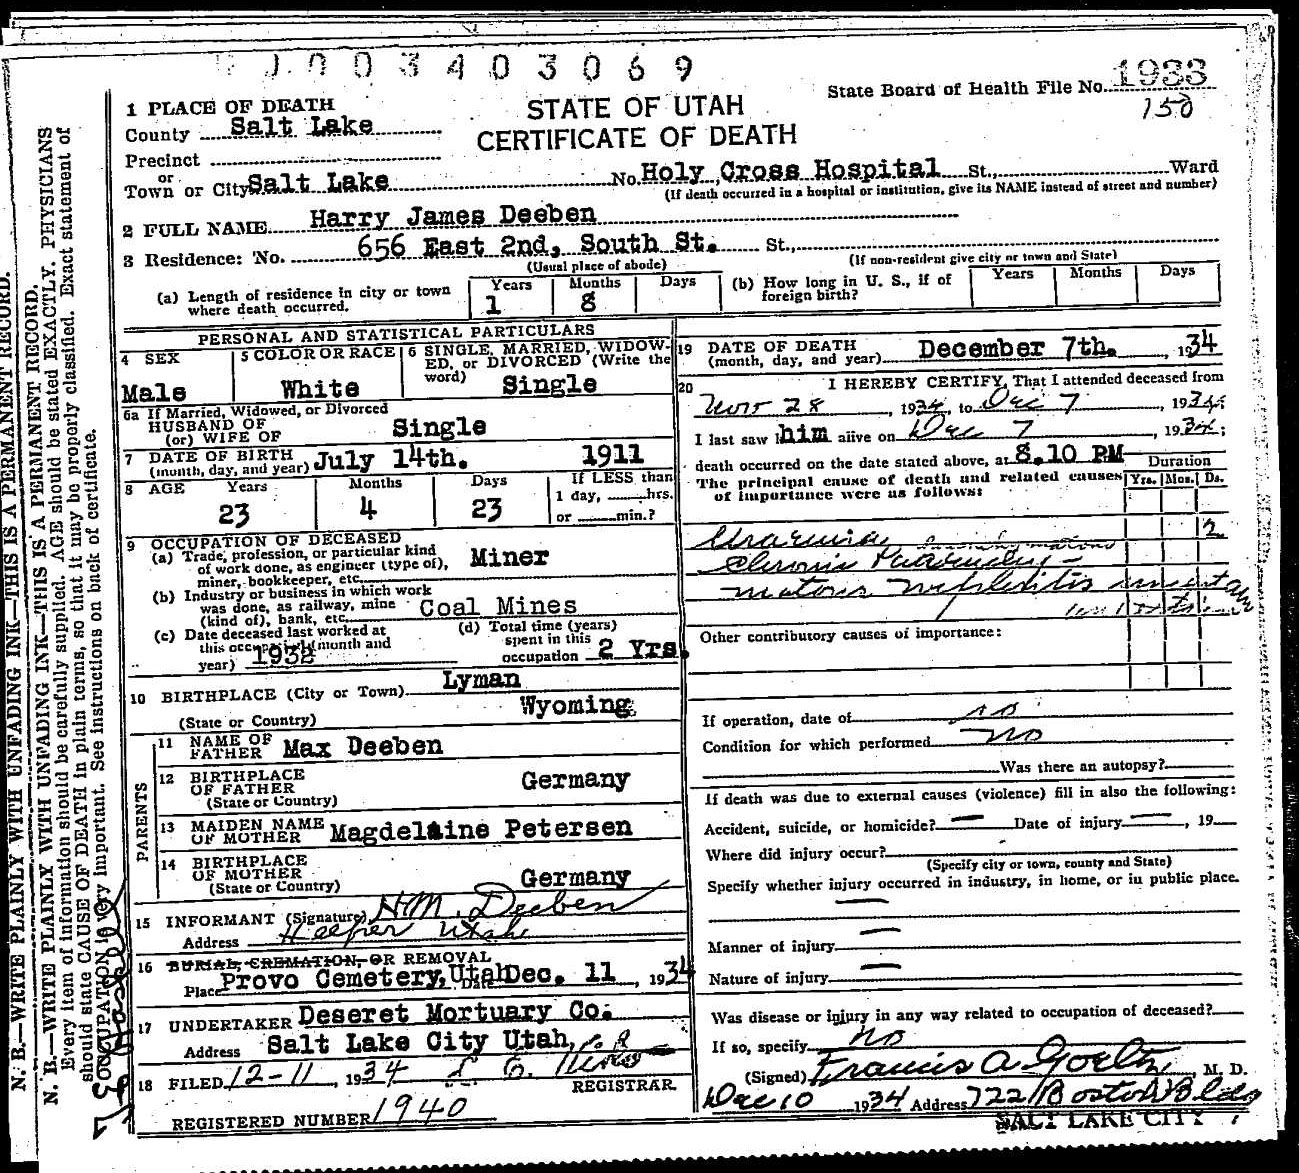 0003403069
State Board of Health File No. 1933
150
1 PLACE OF DEATH
STATE OF UTAH
County Salt Lake
CERTIFICATE OF DEATH
Precinct
or
Town or City Salt Lake No. Holy Cross Hospital St., Ward
(If death occurred in a hospital or institution, give its NAME instead of street and number)
2 FULL NAME Harry James Deeben
3 Residence: No. 656 East 2nd, South St. St.,
(Usual place of abode) (If non-resident give city or town and State)
(a) Length of residence in city or town where death occurred. Years 1 Months 8 Days
(b) How long in U. S., if of foreign birth? Years Months Days
PERSONAL AND STATISTICAL PARTICULARS
4 SEX Male
5 COLOR OR RACE White
6 SINGLE, MARRIED, WIDOW-
ED, or DIVORCED (Write the
word) Single
6a If Married, Widowed, or Divorced
HUSBAND OF
(or) WIFE OF Single
7 DATE OF BIRTH
(month, day, and year) July 14th. 1911
8 AGE Years 23 Months 4 Days 23
If LESS than
1 day, hrs.
or min.?
9 OCCUPATION OF DECEASED
(a) Trade, profession, or particular kind
of work done, as engineer (type of),
miner, bookkeeper, etc. Miner
(b) Industry or business in which work
was done, as railway, mine
(kind of), bank, etc. Coal Mines
(c) Date deceased last worked at
this occupation (month and
year) 1932
(d) Total time (years)
spent in this
occupation 2 Yrs.
10 BIRTHPLACE (City or Town) Lyman
(State or Country) Wyoming
PARENTS
11 NAME OF
FATHER Max Deeben
12 BIRTHPLACE
OF FATHER
(State or Country) Germany
13 MAIDEN NAME
OF MOTHER Magdelaine Petersen
14 BIRTHPLACE
OF MOTHER
(State or Country) Germany
15 INFORMANT (Signature) H.M. Deeben
Address Heeper Utah
16 BURIAL, CREMATION, OR REMOVAL
Place Provo Cemetery, Utah Date Dec. 11, 1934
17 UNDERTAKER Deseret Mortuary Co.
Address Salt Lake City Utah.
18 FILED 12-11, 1934
REGISTRAR
REGISTERED NUMBER 1940
19 DATE OF DEATH
(month, day, and year) December 7th., 1934
20 I HEREBY CERTIFY, That I attended deceased from
Nov 28, 1934, to Dec 7, 1934;
I last saw him alive on Dec 7, 1934;
death occurred on the date stated above, at 8.10 PM
Duration
The principal cause of death and related causes Yrs. Mos. Ds.
of importance were as follows:
Uraemia 2
Chronic
nephritis
Other contributory causes of importance:
If operation, date of no
Condition for which performed no
Was there an autopsy?
If death was due to external causes (violence) fill in also the following:
Accident, suicide, or homicide? — Date of injury —, 19
Where did injury occur?
(Specify city or town, county and State)
Specify whether injury occurred in industry, in home, or in public place.
—
Manner of injury —
Nature of injury —
Was disease or injury in any way related to occupation of deceased?
If so, specify no
(Signed) Francis A Goeltz, M. D.
Dec 10 1934 Address 722 Boston Bldg
SALT LAKE CITY
N. B.—WRITE PLAINLY WITH UNFADING INK—THIS IS A PERMANENT RECORD.
N. B.—WRITE PLAINLY WITH UNFADING INK—THIS IS A PERMANENT RECORD.
Every item of information should be carefully supplied. AGE should be stated EXACTLY. PHYSICIANS
should state CAUSE OF DEATH in plain terms, so that it may be properly classified. Exact statement of
OCCUPATION is very important. See instructions on back of certificate.